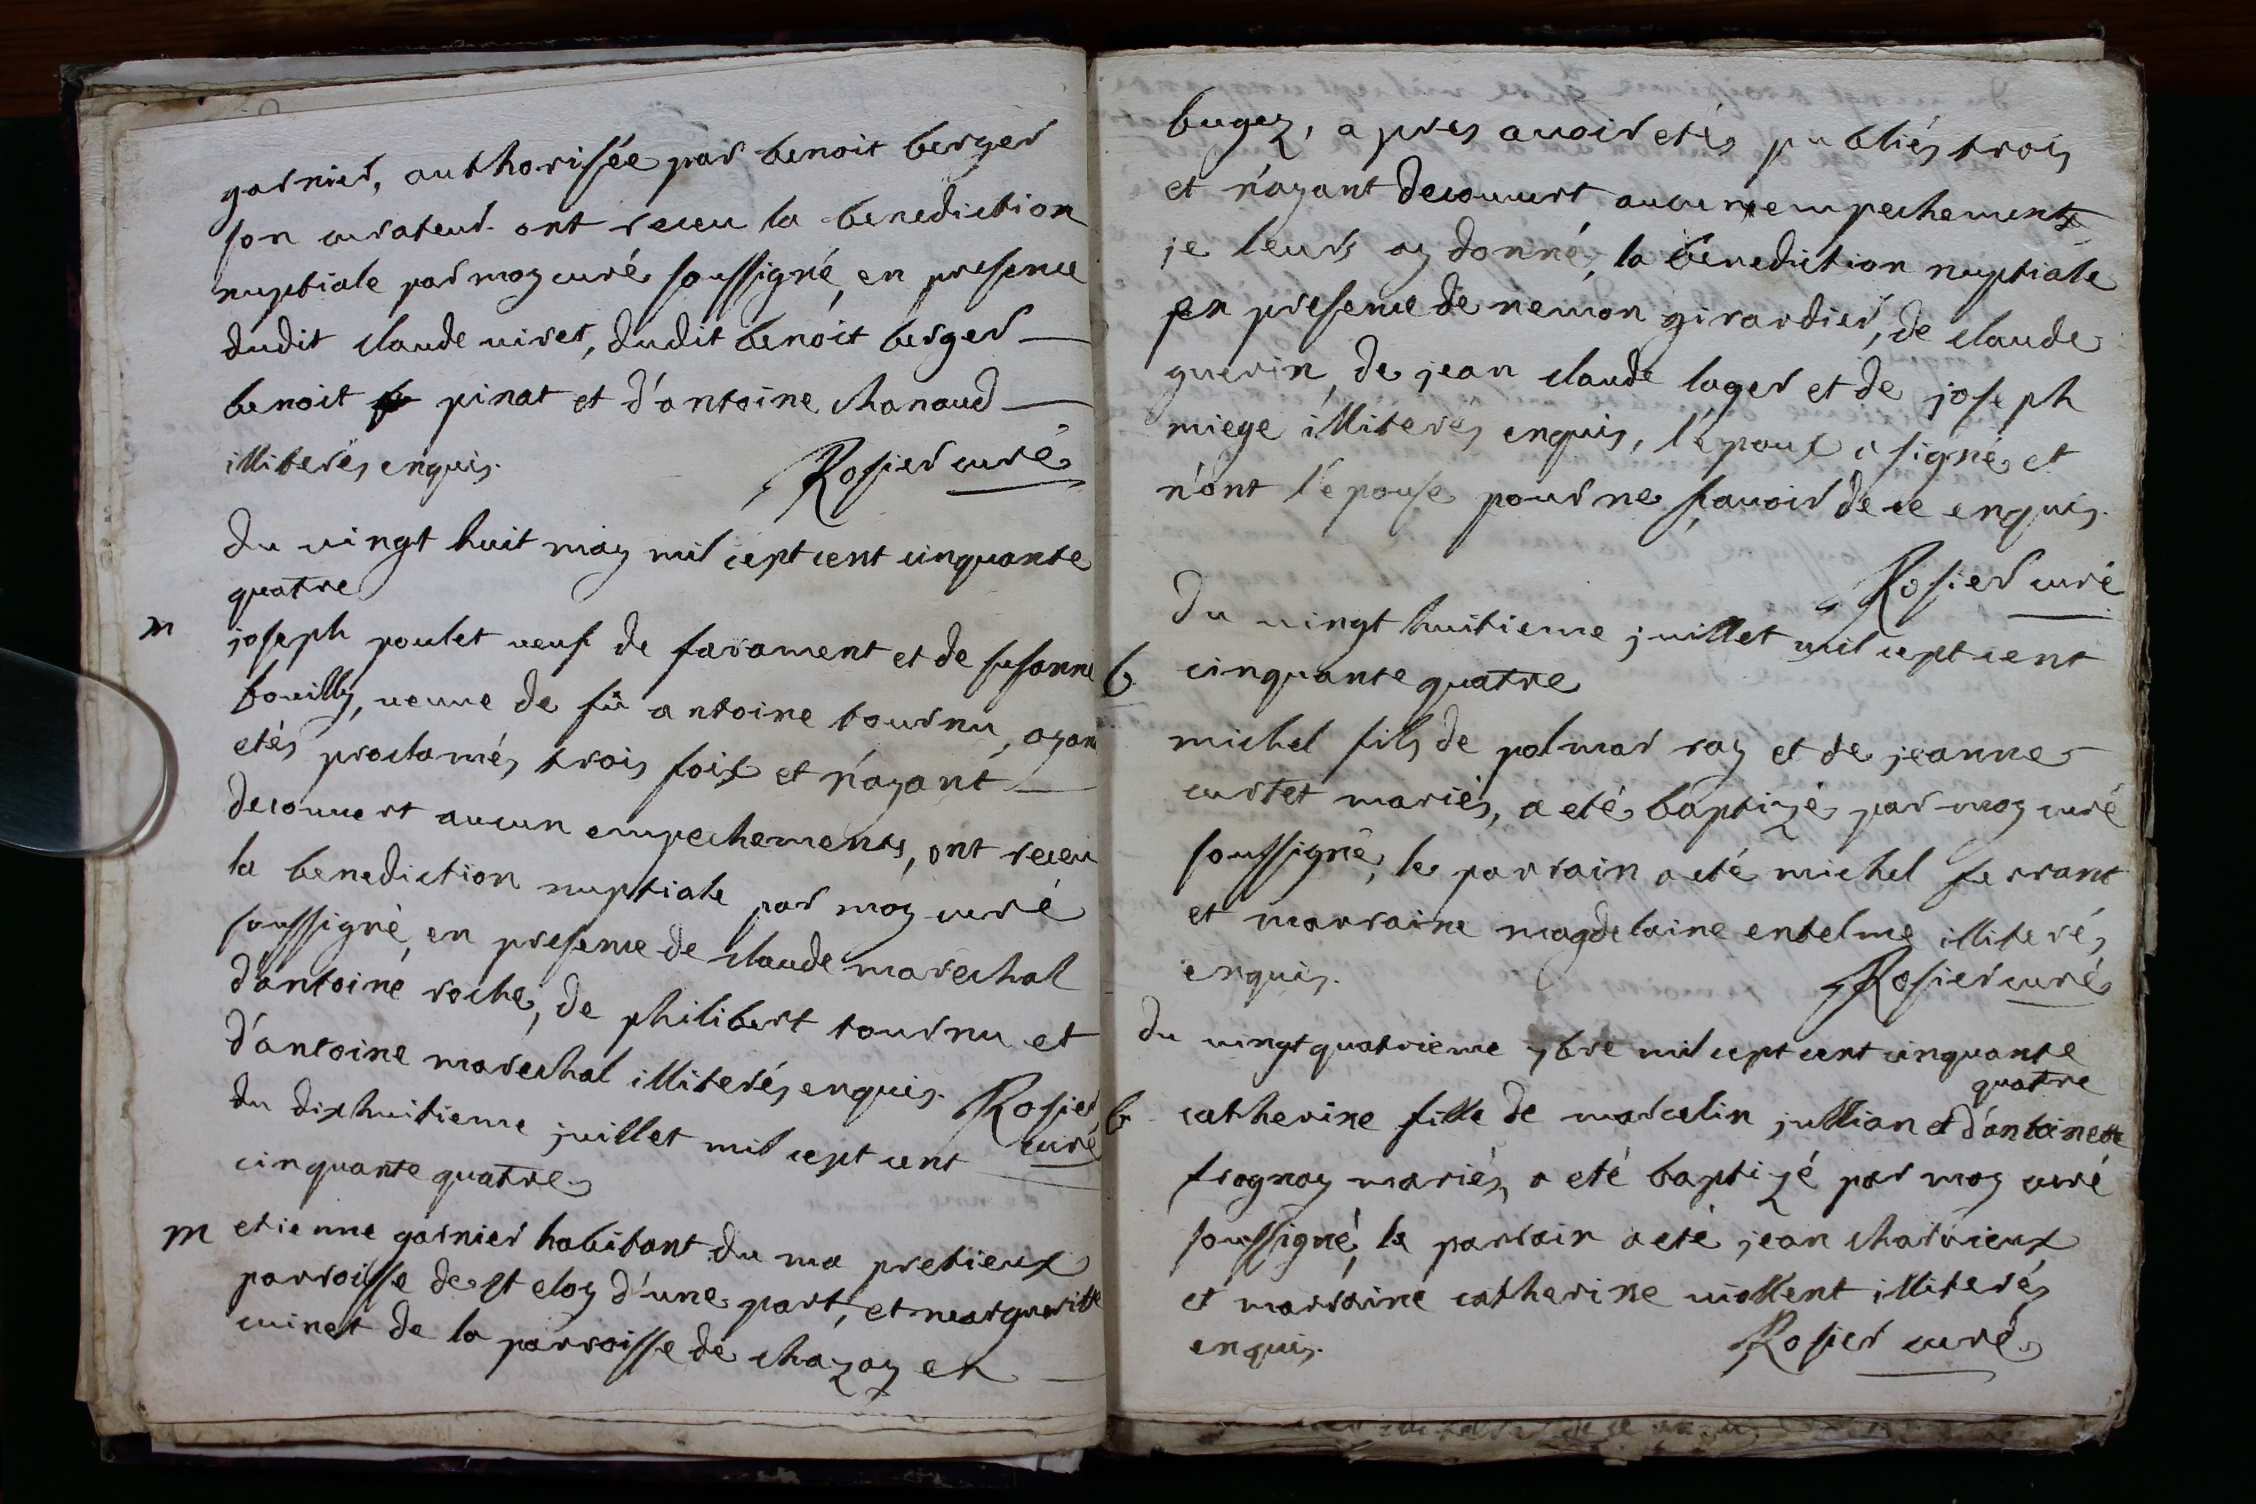 garnier, authorisée par benoit berger
son curateur ont receu la benediction
nuptiale par moy curé soussigné, en presence
dudit claude viret, dudit benoit berger
benoit pinat et d'antoine chanaud
illiterés enquis. Rosier curé
du vingt huit may mil cept cent cinquante
quatre
m
joseph poulet veuf de farament et de susanne
bouilly, veuve de fü antoine tournu, ayant
etés proclamés trois foix et n'ayant
decouvert aucun empechements, ont receu
la benediction nuptiale par moy curé
soussigné, en presence de claude marechal
d'antoine roche, de philibert tournu et
d'antoine marechal illiterés enquis. Rosier
curé
du dixhuitieme juillet mil cept cent
cinquante quatre
m etienne garnier habitant du ma pretieux
parroisse de st eloy d'une part, et margueritte
cuinet de la parroisse de chazay en
bugez, apres avoir etés publiés trois
et n'ayant decouvert aucun empechements
je leurs ay donné, la benediction nuptiale
en presence de nemon girardier, de claude
guerin, de jean claude lager et de joseph
miege illiterés enquis, l'époux a signé et
n'ont l'epouse pour ne sçavoir de ce enquis.
Rosier curé
du vingt huitieme juillet mil cept cent
b cinquante quatre
michel fils de palmar ray et de jeanne
curtet mariés, a eté baptizé par moy curé
soussigné, le parrain a eté michel ferrant
et marraine magdelaine entelme illiterés
enquis. Rosier curé
du vingt quatrieme 7bre mil cept cent cinquante
quatre
b catherine fille de marcelin jullian et d'antoinette
frognay mariés, a eté baptizé par moy curé
soussigné, le parrain a eté jean charvieux
et marraine catherine viollent illiterés
enquis. Rosier curé